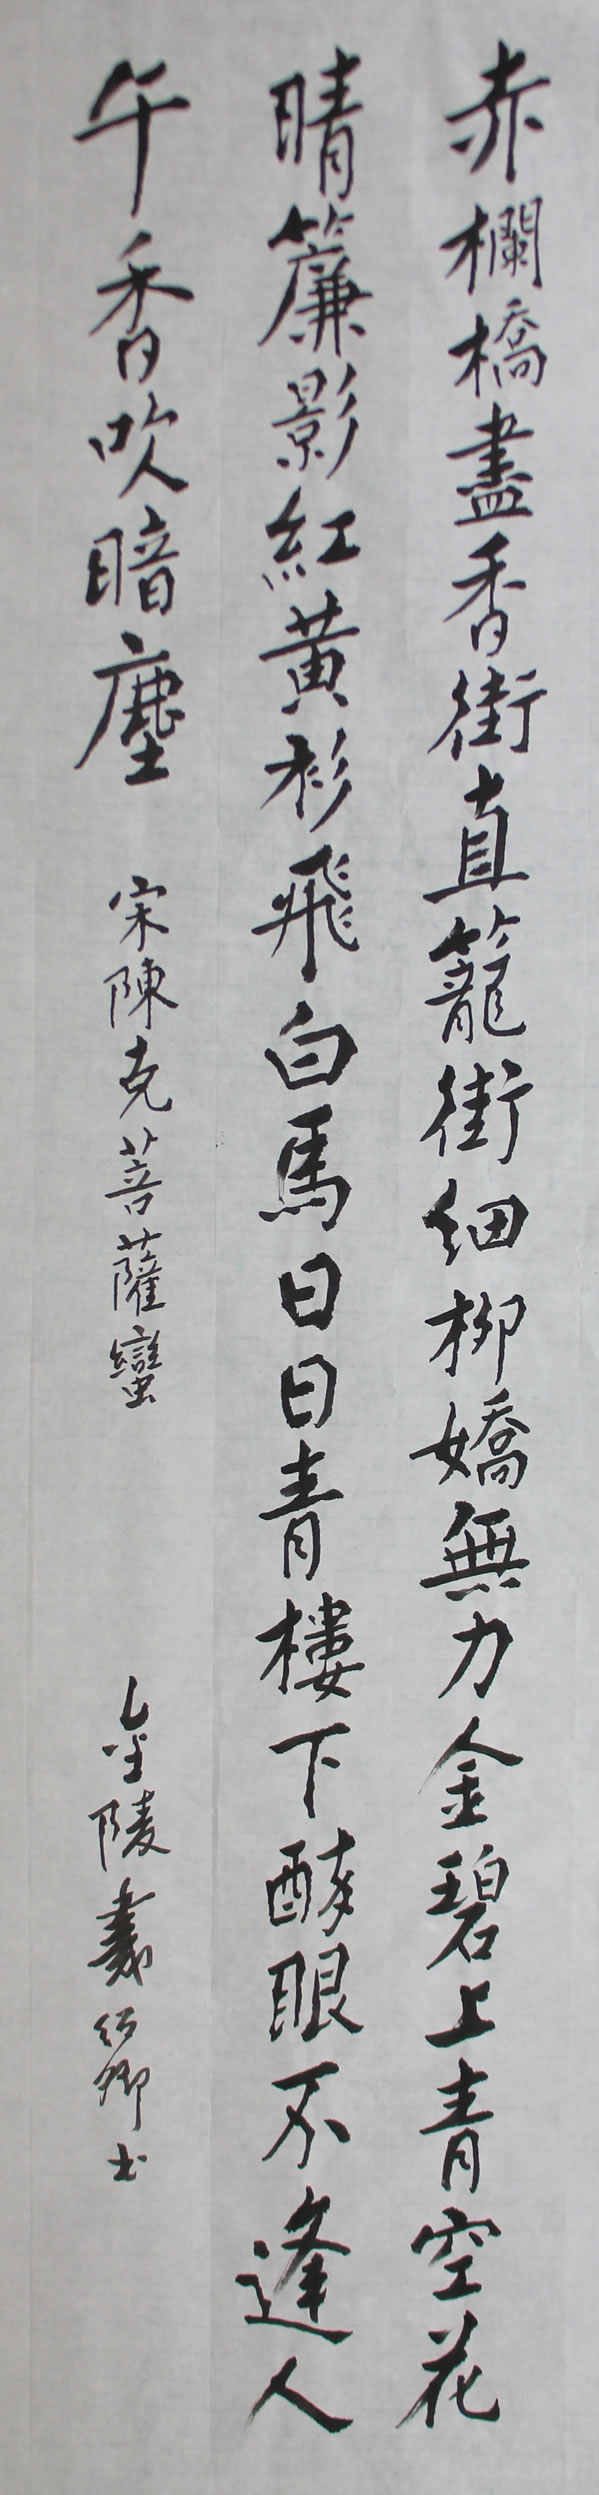 赤欄橋盡香街直籠街細柳嬌無力金碧上青空花
晴簾影紅黄衫飛白馬日日青樓下醉眼不逢人
午香吹暗塵
宋陳克菩薩蠻
金陵戴 卿书